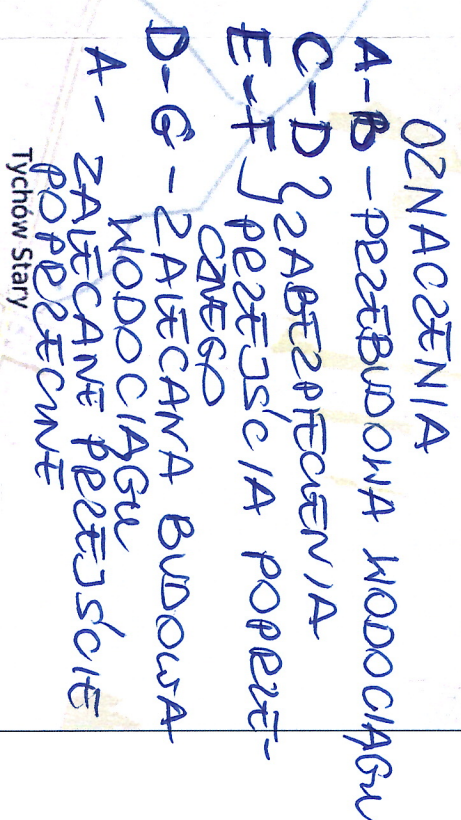 OZNACZENIA
A-B - PRZEBUDOWA WODOCIĄGU
C-D } ZABEZPIECZENIA
E-F } PRZEJŚCIA POPRZE-
CZNEGO
D-G - ZALECANA BUDOWA
WODOCIĄGU
A - ZALECANE PRZEJŚCIE
POPRZECZNE
Tychów Stary